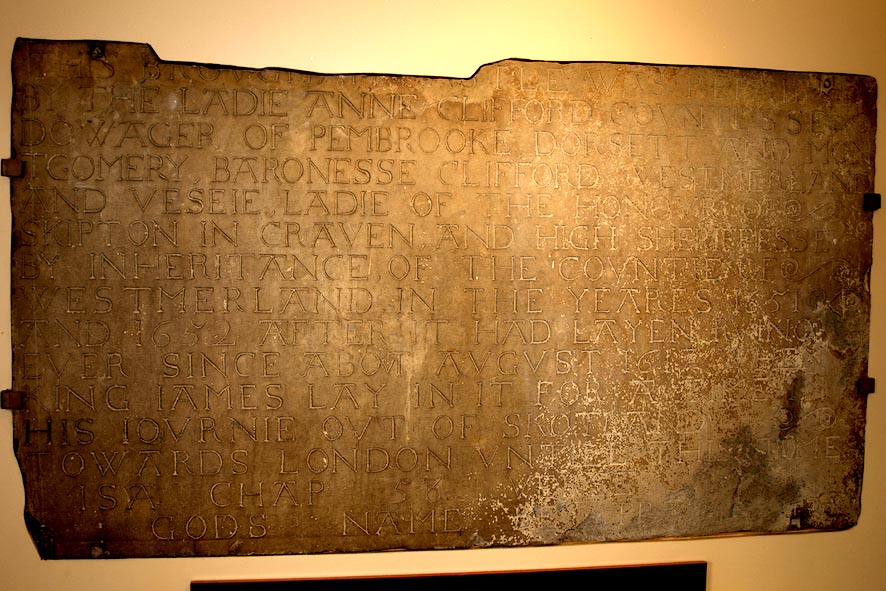 THIS BROUGHAM CASTLE WAS REPAIRED
BY THE LADIE ANNE CLIFFORD COVNTESSE
DOWAGER OF PEMBROOKE DORSETT AND MON
TGOMERY BARONESSE CLIFFORD WESTMERLAND
AND VESEIE, LADIE OF THE HONOUR OF
SKIPTON IN CRAVEN, AND HIGH SHERIFFESSE
BY INHERITANCE, OF THE COVNTIE OF
WESTMERLAND IN THE YEARES 1651
AND 1652 AFTER IT HAD LAYEN RVINO
EVER SINCE ABOVT AVGVST 1617
ING IAMES LAY IN IT FOR A
HIS IOVRNIE OVT OF SKOTLAND
TOWARDS LONDON VNTILL THIS TIME
ISA CHAP 58
GODS NAME